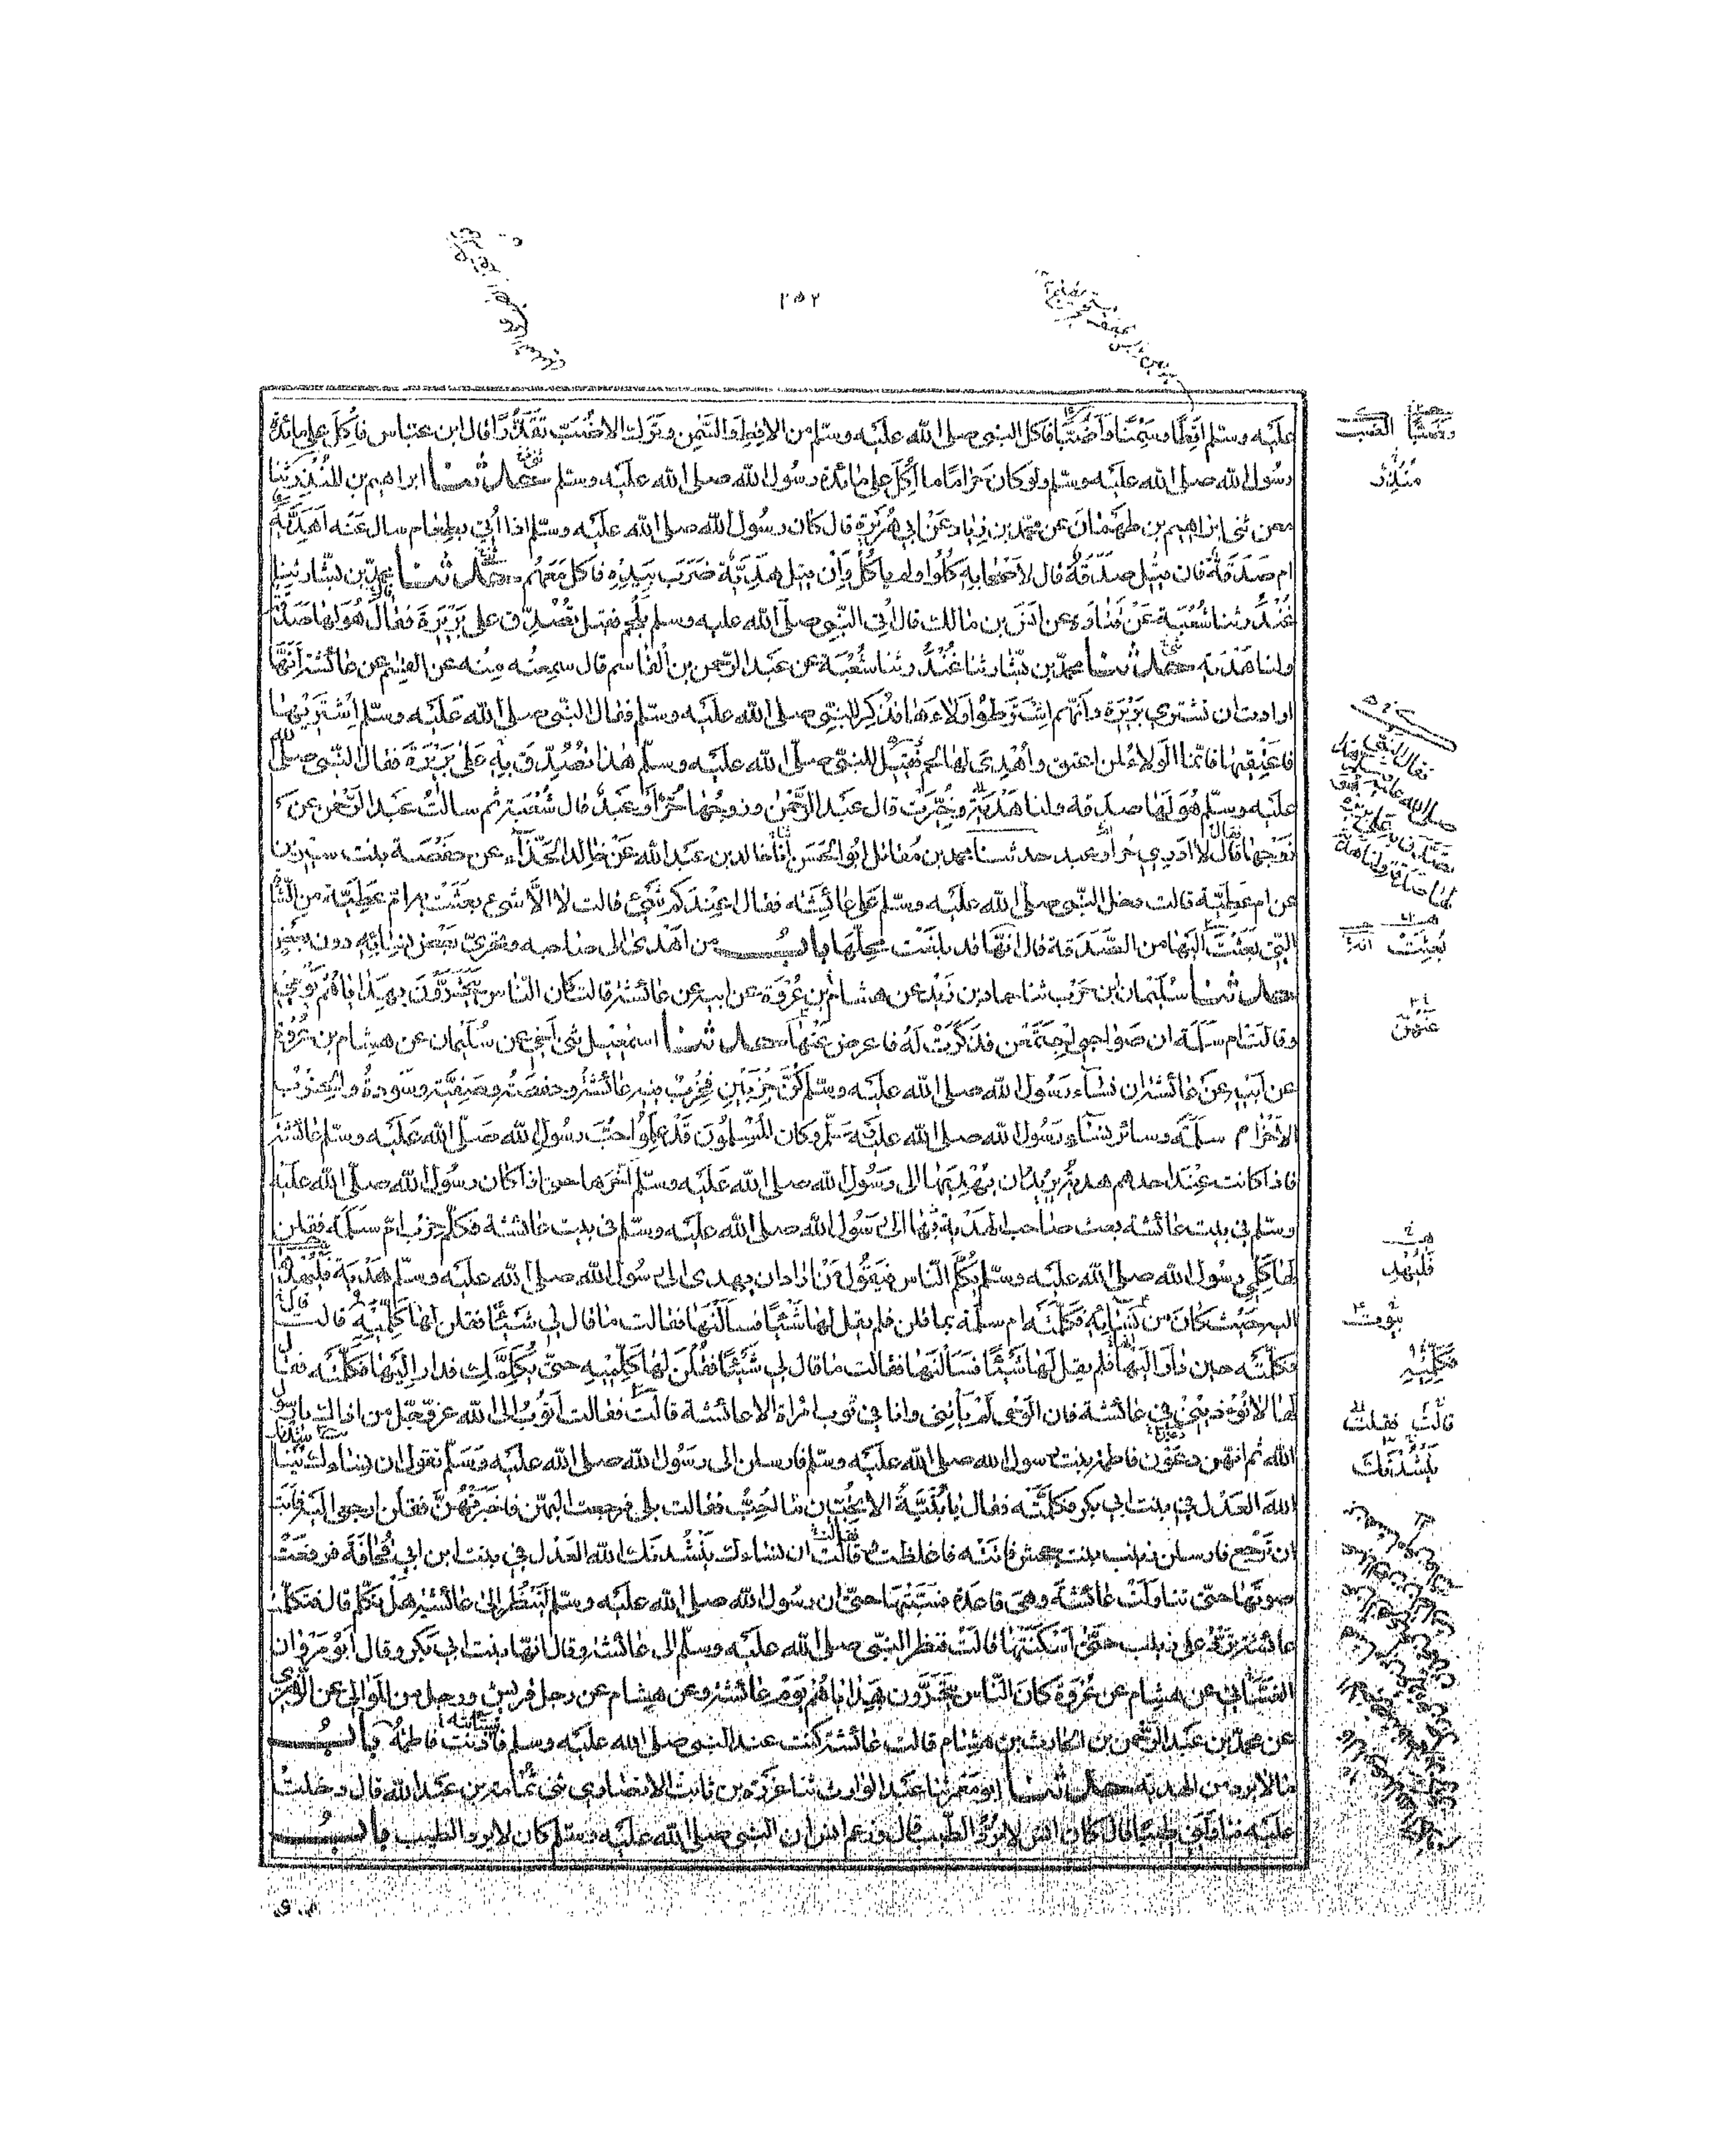 ٢٥٢
عليه وسلم اقطا وسمنا واضبا فاكل النبي صلى الله عليه وسلم من الاقط والسمن وترك الاضب تقذرا قال ابن عباس فاكل على مائدة
رسول الله صلى الله عليه وسلم ولو كان حراما ما اكل على مائدة رسول الله صلى الله عليه وسلم حدثنا ابراهيم بن المنذر ثنا
معن ثنى ابراهيم بن طهمان عن محمد بن زياد عن ابي هريرة قال كان رسول الله صلى الله عليه وسلم اذا اتي بطعام سال عنه اهدية
ام صدقة فان قيل صدقة قال لاصحابه كلوا ولم ياكل وان قيل هدية ضرب بيده فاكل معهم حدثنا محمد بن بشار ثنا
غندر ثنا شعبة عن قتادة عن انس بن مالك قال اتي النبي صلى الله عليه وسلم بلحم فقيل تصدق على بريرة فقال هو لها صدقة
ولنا هدية حدثنا محمد بن بشار ثنا غندر ثنا شعبة عن عبد الرحمن بن القاسم قال سمعته منه عن القاسم عن عائشة انها
ارادت ان تشتري بريرة وانهم اشترطوا ولاءها فذكر للنبي صلى الله عليه وسلم فقال النبي صلى الله عليه وسلم اشتريها
فاعتقيها فانما الولاء لمن اعتق واهدي لها لحم فقيل للنبي صلى الله عليه وسلم هذا تصدق به على بريرة فقال النبي صلى الله
عليه وسلم هو لها صدقة ولنا هدية وخيرت قال عبد الرحمن وزوجها حر او عبد قال شعبة ثم سالت عبد الرحمن عن
زوجها قال لا ادري حر او عبد حدثنا محمد بن مقاتل ابو الحسن انا خالد بن عبد الله عن خالد الحذاء عن حفصة بنت سيرين
عن ام عطية قالت دخل النبي صلى الله عليه وسلم على عائشة فقال اعندكم شيء قالت لا الا شيء بعثت به ام عطية من الشاة
التي بعثت اليها من الصدقة قال انها قد بلغت محلها باب من اهدى الى صاحبه وتحرى بعض نسائه دون بعض
حدثنا سليمان بن حرب ثنا حماد بن زيد عن هشام بن عروة عن ابيه عن عائشة قالت كان الناس يتحرون بهداياهم يومي
وقالت ام سلمة ان صواحبي اجتمعن فذكرت له فاعرض عنها حدثنا اسمعيل ثنى اخي عن سليمان عن هشام بن عروة
عن ابيه عن عائشة ان نساء رسول الله صلى الله عليه وسلم كن حزبين فحزب فيه عائشة وحفصة وصفية وسودة والحزب
الاخر ام سلمة وسائر نساء رسول الله صلى الله عليه وسلم وكان المسلمون قد علموا حب رسول الله صلى الله عليه وسلم عائشة
فاذا كانت عند احدهم هدية يريد ان يهديها الى رسول الله صلى الله عليه وسلم اخرها حتى اذا كان رسول الله صلى الله عليه
وسلم في بيت عائشة بعث صاحب الهدية بها الى رسول الله صلى الله عليه وسلم في بيت عائشة فكلم حزب ام سلمة فقلن
لها كلمي رسول الله صلى الله عليه وسلم يكلم الناس فيقول من اراد ان يهدي الى رسول الله صلى الله عليه وسلم هدية فليهدها
اليه حيث كان من نسائه فكلمته ام سلمة بما قلن فلم يقل لها شيئا فسالنها فقالت ما قال لي شيئا فقلن لها كلميه قالت
فكلمته حين دار اليها فلم يقل لها شيئا فسالنها فقالت ما قال لي شيئا فقلن لها كلميه حتى يكلمك فدار اليها فكلمته فقال
لها لا تؤذيني في عائشة فان الوحي لم ياتني وانا في ثوب امراة الا عائشة قالت فقالت اتوب الى الله عز وجل من اذاك يا رسول
الله ثم انهن دعون فاطمة بنت رسول الله صلى الله عليه وسلم فارسلن الى رسول الله صلى الله عليه وسلم تقول ان نساءك
الله العدل في بنت ابي بكر فكلمته فقال يا بنية الا تحبين ما احب فقالت بلى فرجعت اليهن فاخبرتهن فقلن ارجعي اليه فابت
ان ترجع فارسلن زينب بنت جحش فاتته فاغلظت قالت ان نساءك ينشدنك الله العدل في بنت ابن ابي قحافة فرفعت
صوتها حتى تناولت عائشة وهي قاعدة فسبتها حتى ان رسول الله صلى الله عليه وسلم لينظر الى عائشة هل تكلم قال فتكلمت
عائشة ترد على زينب حتى اسكتتها قالت فنظر النبي صلى الله عليه وسلم الى عائشة وقال انها بنت ابي بكر وقال ابو مروان
الغساني عن هشام عن عروة كان الناس يتحرون بهداياهم يوم عائشة وعن هشام عن رجل من قريش ورجل من الموالي عن الزهري
عن محمد بن عبد الرحمن بن الحارث بن هشام قالت عائشة كنت عند النبي صلى الله عليه وسلم فاستاذنت فاطمة باب
ما لا يرد من الهدية حدثنا ابو معمر ثنا عبد الوارث ثنا عزرة بن ثابت الانصاري ثنى ثمامة بن عبد الله قال دخلت
عليه فناولني طيبا قال كان انس لا يرد الطيب قال وزعم انس ان النبي صلى الله عليه وسلم كان لا يرد الطيب باب
وضبا الضب
منذر
بعثت
عنهن
فليهد
بيوت
فكلميه
قالت فقلت
ينشدنك